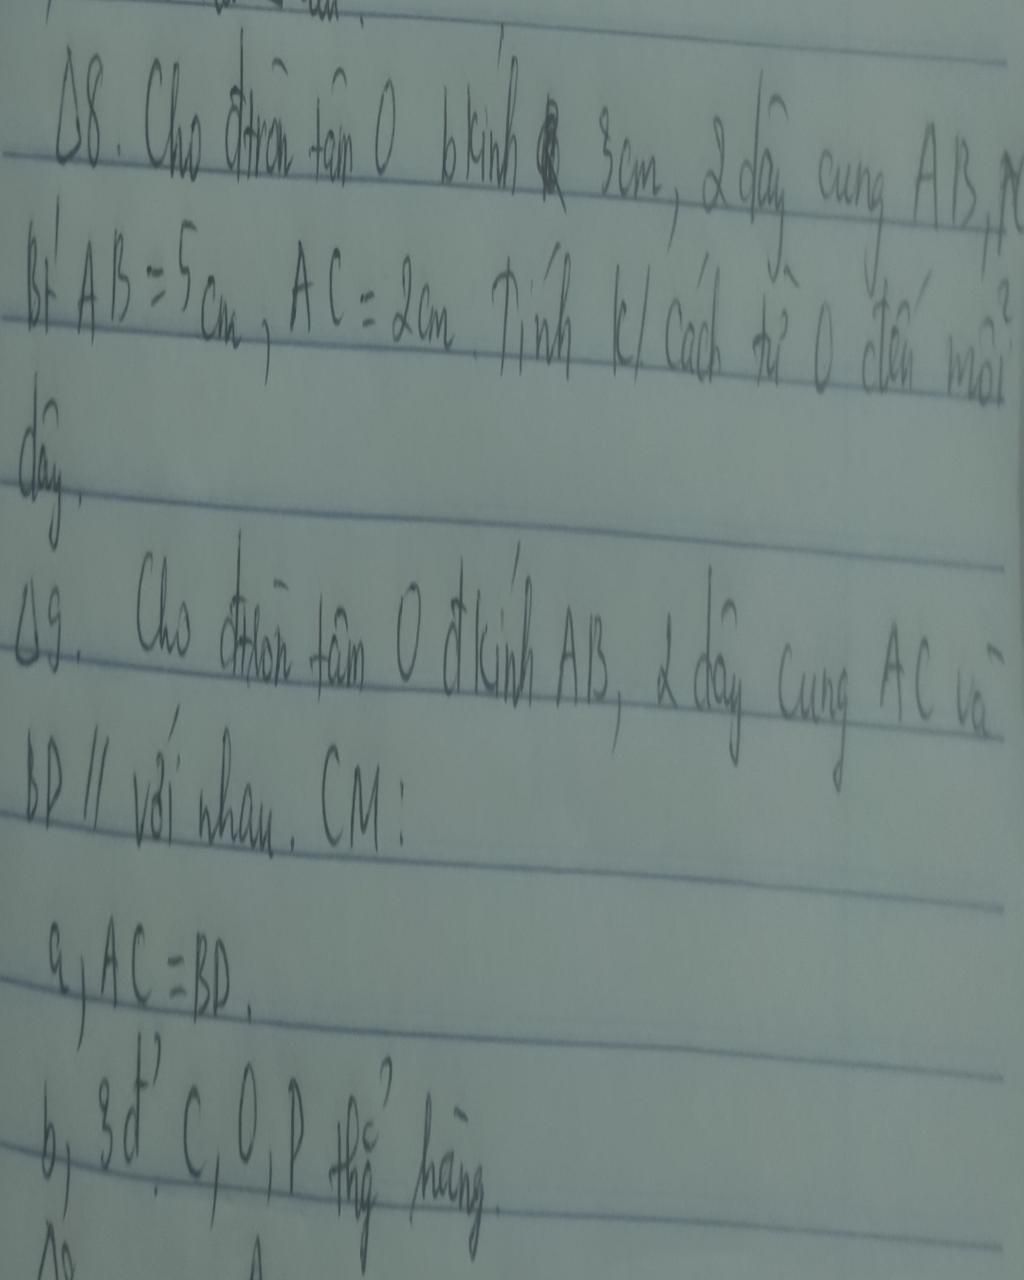 Δ8. Cho đtròn tâm O bkính 3cm, 2 dây cung AB,
Bt' AB = 5cm, AC = 2cm. Tính k/cách từ O đến mỗi
dây.
Δ9. Cho đtròn tâm O đkính AB, 2 dây cung AC và
BD // với nhau. CM:
a, AC = BD.
b, 3đ' C, O, D thg? hàng.